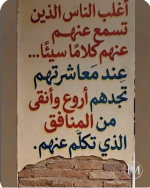 أغلب الناس الذين
تسمع عنهم
عنهم كلامًا سيئًا...
عند مَعاشرتهم
تجدهم أروع وأنقى
من المنافق
الذي تكلّم عنهم.